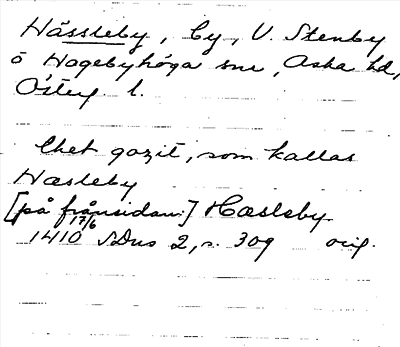 Hässleby, by, V. Stenby
ö Hagebyhöga sne, Aska hd,
Österg. l.
thet gozit, som kallas
Hæsleby
[på frånsidan:] Hæsleby
17/6
1410 SDns 2, s. 309 orig.